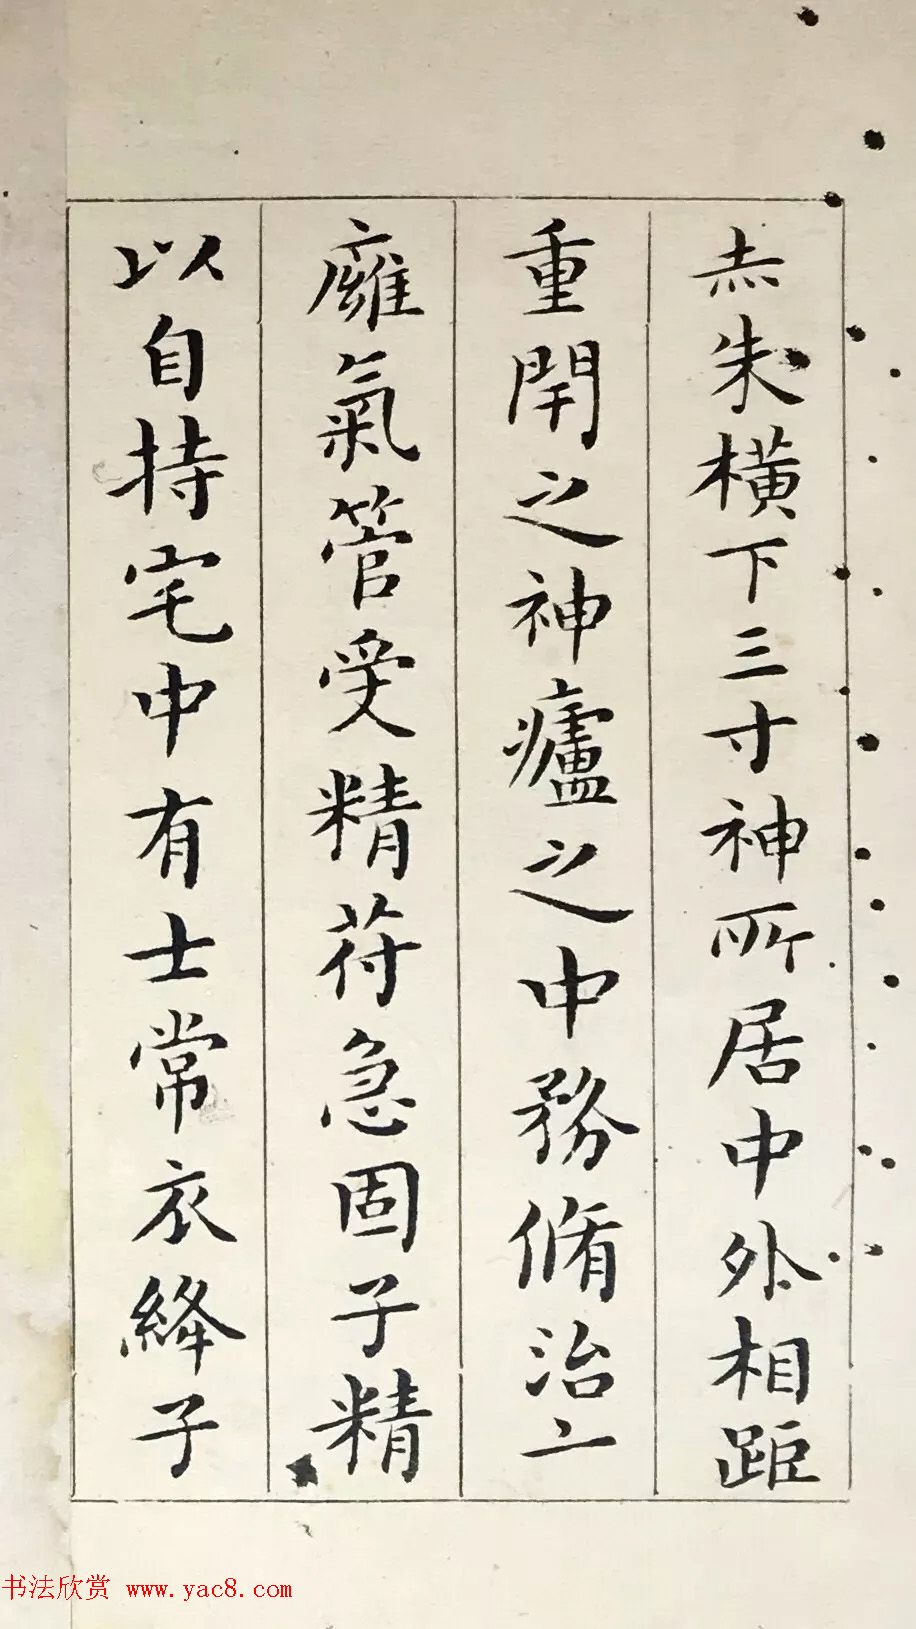 赤朱橫下三寸神所居中外相距
重閇之神廬之中務脩治二
廱氣管受精苻急固子精
以自持宅中有士常衣絳子
书法欣赏 www.yac8.com